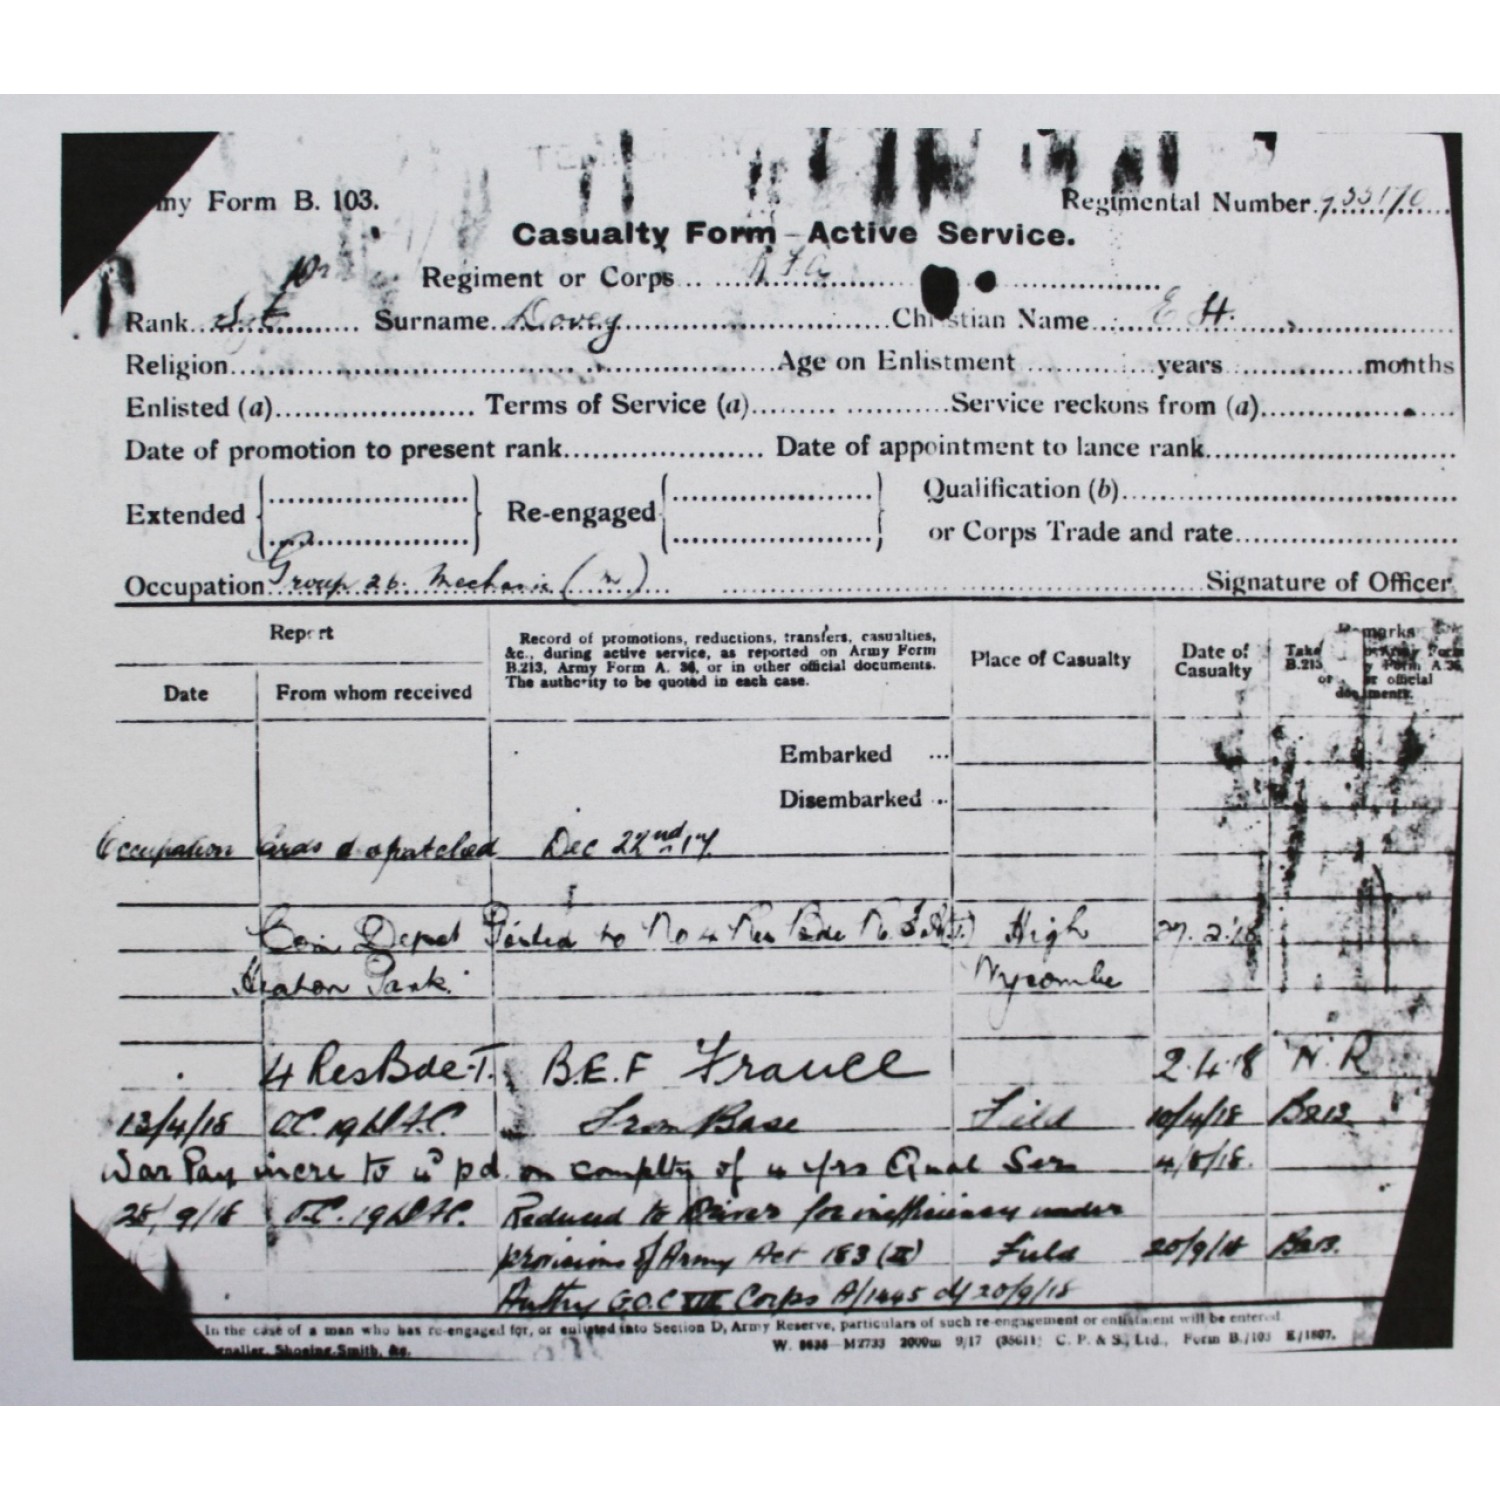 my Form B. 103.
Regimental Number 955170
Casualty Form—Active Service.
Regiment or Corps RFA
Rank Sgt Surname Dovey Christian Name E H.
Religion Age on Enlistment years months
Enlisted (a) Terms of Service (a) Service reckons from (a)
Date of promotion to present rank Date of appointment to lance rank
Extended Re-engaged Qualification (b)
or Corps Trade and rate
Occupation Group 26. Mechanic (m) Signature of Officer
Report
Date From whom received
Record of promotions, reductions, transfers, casualties,
&c., during active service, as reported on Army Form
B.213, Army Form A. 36, or in other official documents.
The authority to be quoted in each case.
Place of Casualty
Date of
Casualty
Remarks
Take Army Form
B.213 Form A.36,
or official
documents.
Embarked ...
Disembarked ...
Occupation Cards despatched Dec 22nd 17
Depot Posted to No 4 Res Bde R.F.A(T) High 27.2.18
Heaton Park. Wycombe
4 Res Bde T. B.E.F France 2.4.18 N.R
13/4/18 O.C. 19 D.A.C. From Base Field 10/4/18 B213
War Pay incre to 4d pd. on complty of 4 yrs Qual Ser 4/8/18.
28/9/18 O.C. 19 D.A.C. Reduced to Driver for inefficiency under
provisions of Army Act 183 (II) Field 20/9/18 B213.
Authy G.O.C VII Corps A/1445 d/ 20/9/18
In the case of a man who has re-engaged for, or enlisted into Section D, Army Reserve, particulars of such re-engagement or enlistment will be entered.
Shoeing Smith, &c.
W. 8635—M2733 2000m 9/17 (35611) C. P. & S., Ltd., Form B./103 E/1807.